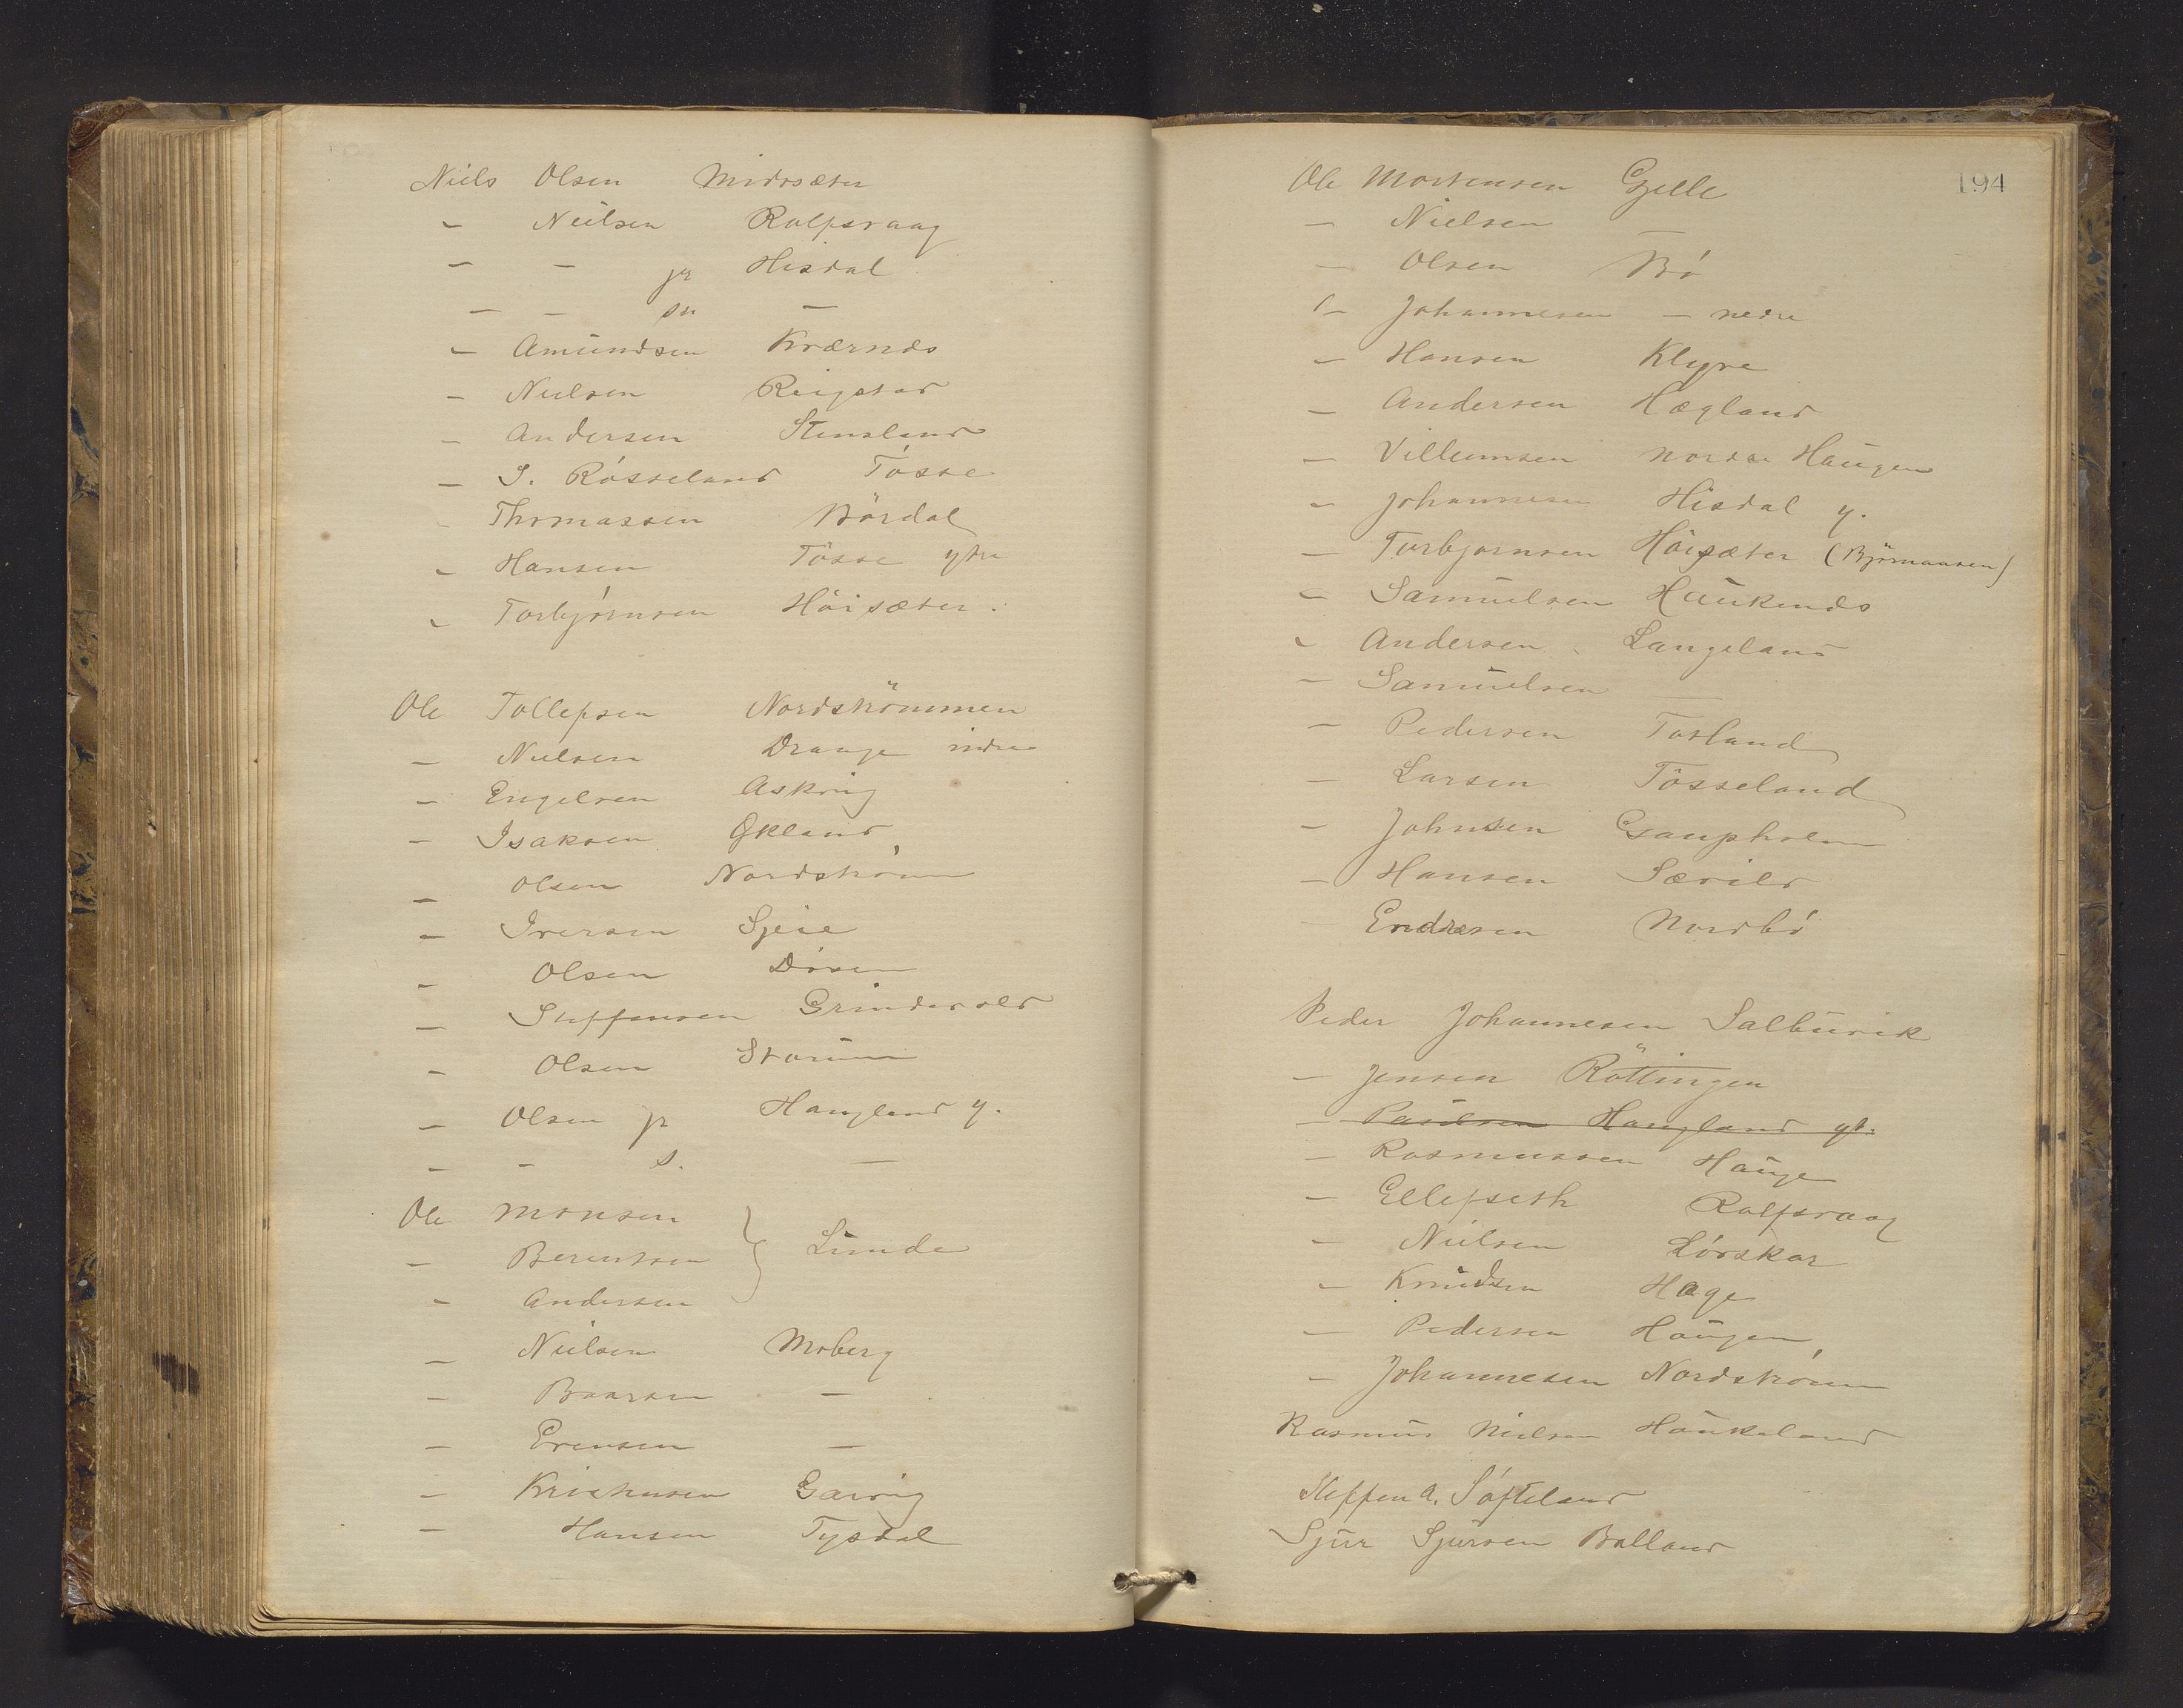 Niels Olsen Midtsæter
– Nielsen Rolfsvaag
– – jr Hisdal
– – sr –
– Amundsen Kværnds
– Nielsen Reigstad
– Andersen Stensland
– S. Røsseland Tøsse
– Thomassen Bördal
– Hansen Tösse ytre
– Torbjørnsen Höisæter.
Ole Tollefsen Nordströmmen
– Nielsen Drange indre
– Engelsen Askvig
– Isaksen Økland
– Olsen Nordstrøm
– Iversen Gjeie
– Olsen Døsen
– Steffensen Grindevold
– Olsen Storum
– Olsen jr Haugland y.
– – s. –
Ole Monsen
– Berentsen } Lunde
– Andersen
– Nielsen Moberg
– Baarsen –
– Evensen –
– Kristensen Gaivig
– Hansen Tysdal
194
Ole Mortensen Gjelle
– Nielsen –
– Olsen Bø
– Johannesen – nedre
– Hansen Klyve
– Andersen Hægland
– Villumsen nordre Haugen
– Johannesen Hisdal y.
– Torbjørnsen Höisæter (Björnaasen)
– Samuelsen Haukends
– Andersen Langeland
– Samuelsen –
– Pedersen Tosland
– Larsen Tösseland
– Johnsen Gaupholm
– Hansen Sævild
– Endresen Nordbø
Peder Johannesen Salbuvik
– Jensen Röttingen
– Paulsen Haugland yt.
– Rasmussen Hauge
– Ellefseth Rolfsvaag
– Nielsen Lørskar
– Knudsen Hage
– Pedersen Haugen
– Johannesen Nordstrøm
Rasmus Nielsen Haukeland
Steffen A. Søfteland
Sjur Sjursen Balland